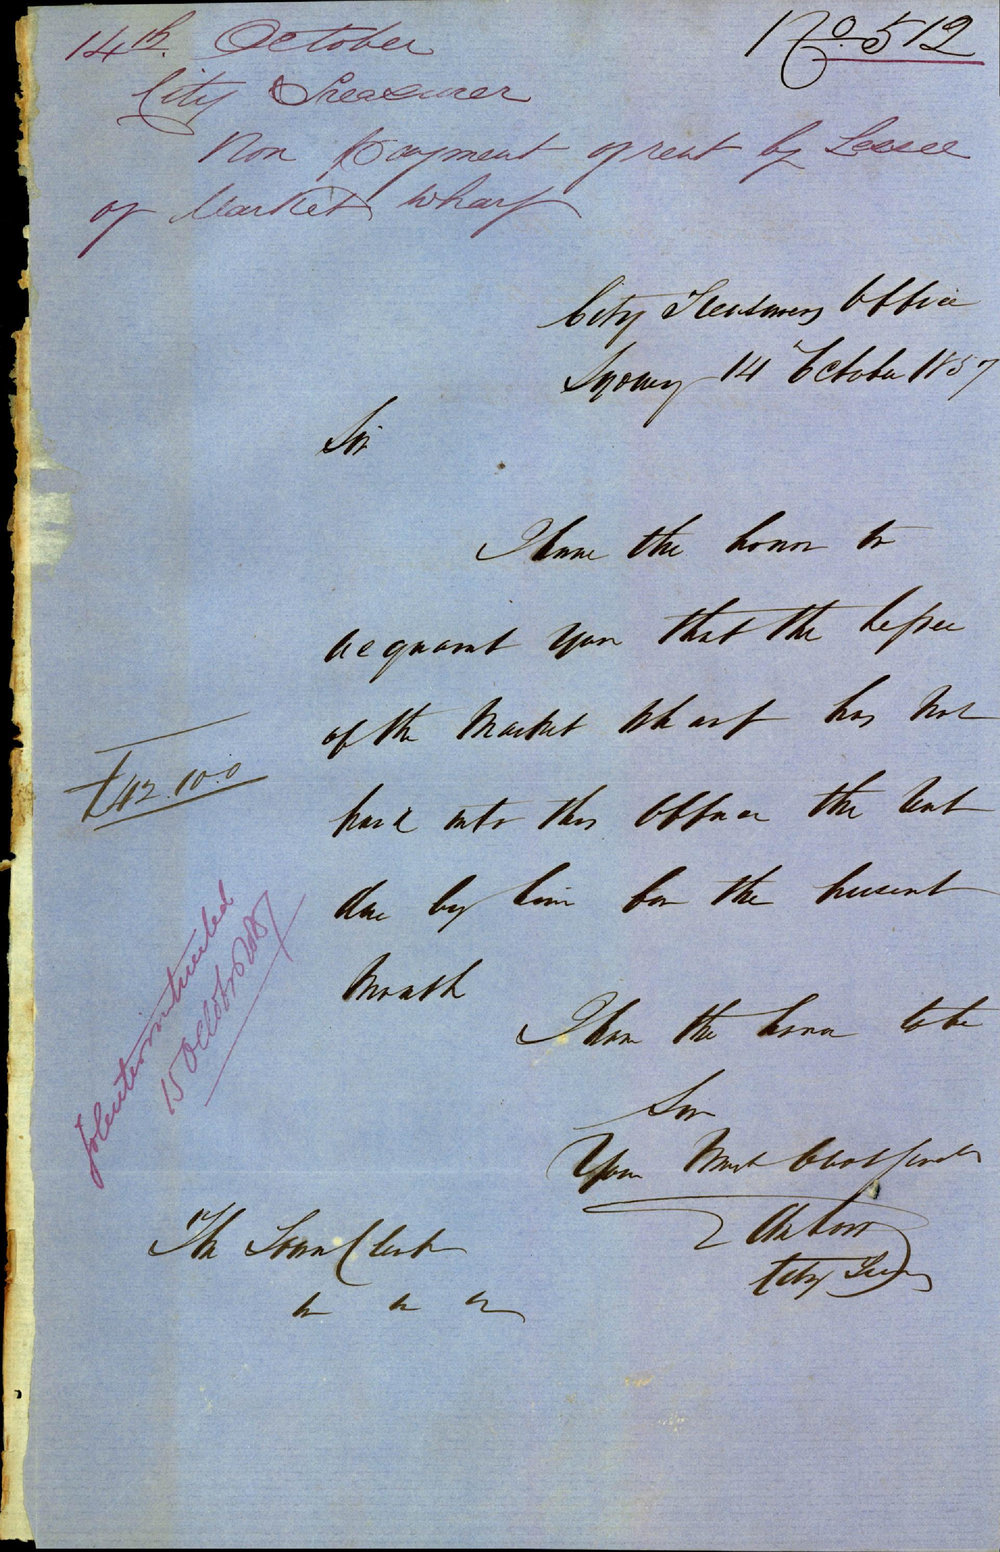 No. 512
14th. October
City Treasurer
Non payment of rent by Lessee
of Market Wharf
City Treasurers Office
Sydney 14 October 1857
Sir
I have the honor to
acquaint you that the Lessee
of the Market Wharf has not
£42.10.0
paid into this Office the rent
due by him for the present
Month
15 October 1857
I have the honor to be
Sir
Your Most Obot Servt
The Town Clerk
City Treas